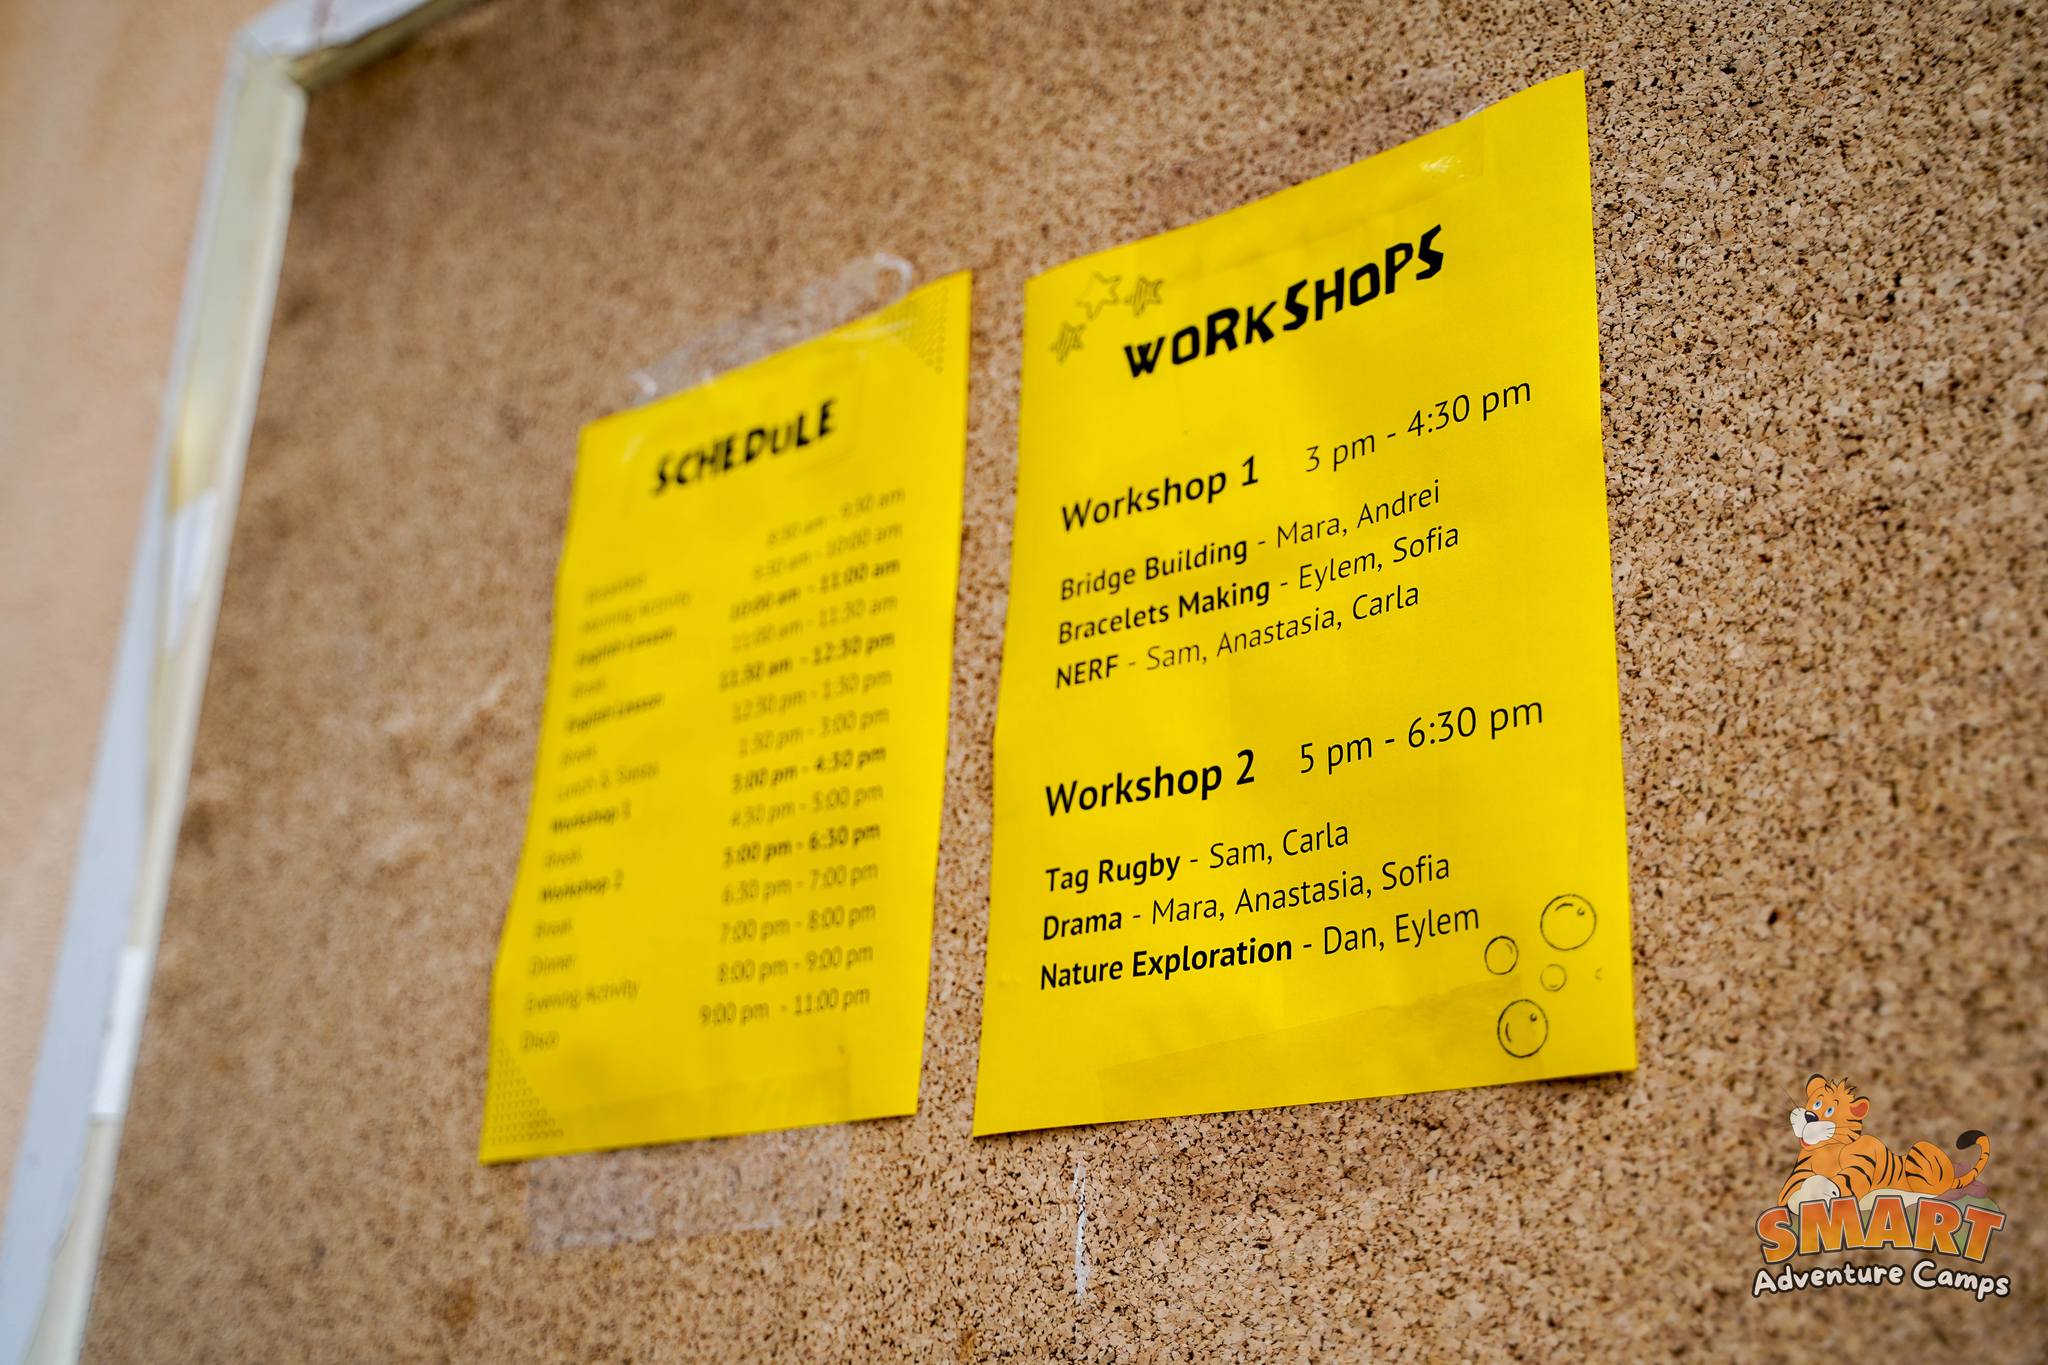 SCHEDULE
Breakfast 8:30 am - 9:30 am
Morning Activity 9:30 am - 10:00 am
English Lesson 10:00 am - 11:00 am
Break 11:00 am - 11:30 am
English Lesson 11:30 am - 12:30 pm
Break 12:30 pm - 1:30 pm
Lunch & Siesta 1:30 pm - 3:00 pm
Workshop 1 3:00 pm - 4:30 pm
Break 4:30 pm - 5:00 pm
Workshop 2 5:00 pm - 6:30 pm
Break 6:30 pm - 7:00 pm
Dinner 7:00 pm - 8:00 pm
Evening Activity 8:00 pm - 9:00 pm
Disco 9:00 pm - 11:00 pm
WORKSHOPS
Workshop 1 3 pm - 4:30 pm
Bridge Building - Mara, Andrei
Bracelets Making - Eylem, Sofia
NERF - Sam, Anastasia, Carla
Workshop 2 5 pm - 6:30 pm
Tag Rugby - Sam, Carla
Drama - Mara, Anastasia, Sofia
Nature Exploration - Dan, Eylem
SMART
Adventure Camps